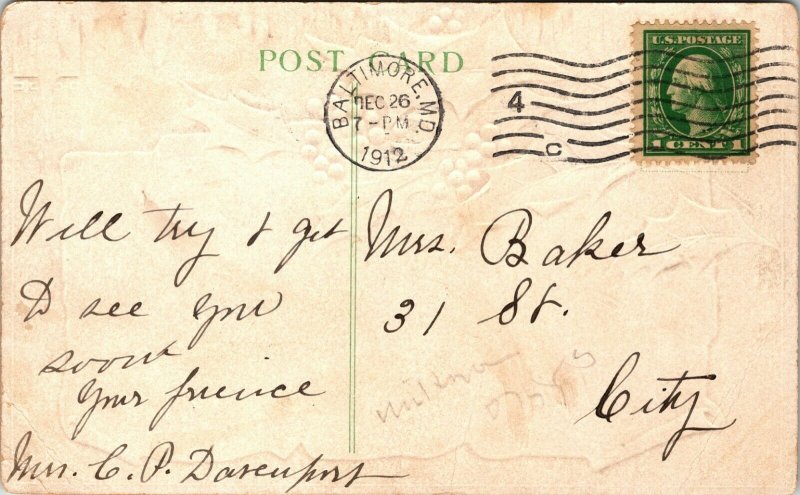 POST CARD
BALTIMORE, MD.
DEC 26
7-PM
1912
4
C
U.S. POSTAGE
1 CENT 1
Will try & get
To see you
soon
Your friend
Mrs. C. P. Davenport
Mrs. Baker
31 St.
City
unknown